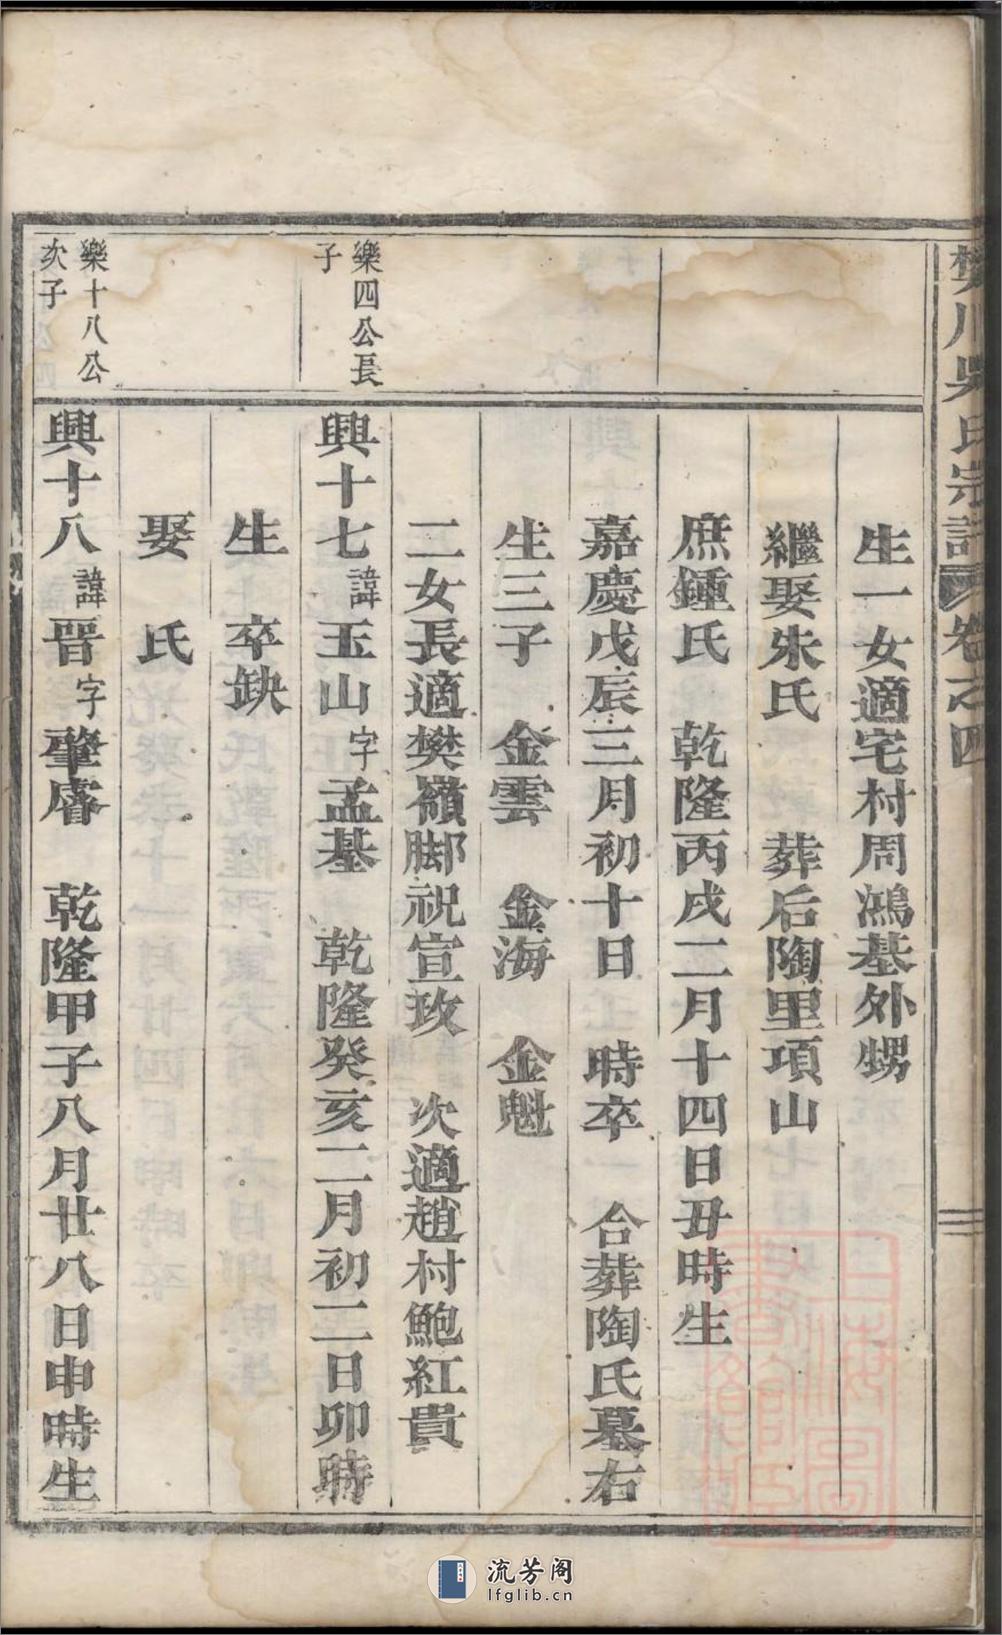 樊川吳氏宗譜 卷之四
生一女適宅村周鴻基外甥
繼娶朱氏 葬后陶里項山
庶鍾氏 乾隆丙戌二月十四日丑時生
嘉慶戊辰三月初十日 時卒 合葬陶氏墓右
生三子 金雲 金海 金魁
二女長適樊嶺脚祝宣玫 次適趙村鮑紅貴
樂四公長
子
興十七諱玉山字孟基 乾隆癸亥二月初二日卯時
生 卒缺
娶 氏
樂十八公
次子
興十八諱晋字肇膚 乾隆甲子八月廿八日申時生
上海圖書館藏
流芳阁
lfglib.cn